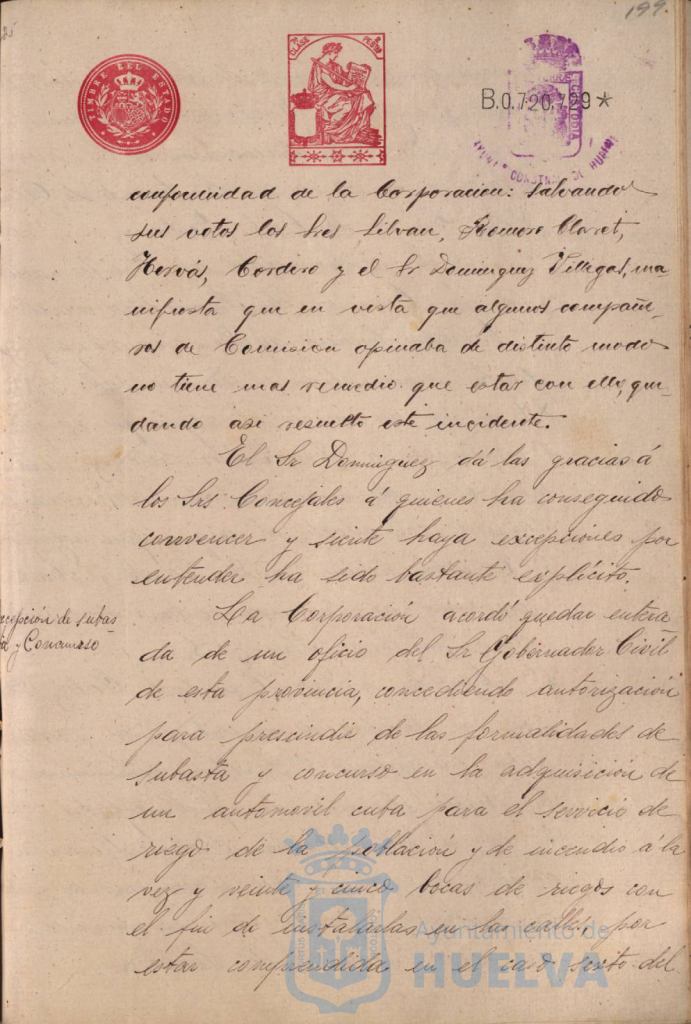 199.
TIMBRE DEL ESTADO
CLASE PESETAS
B.0.720.729*
CUSTODIA
conformidad de la Corporacion: salvando
sus votos los Sres Silvan, Romero Claret,
Hervás, Cordero y el Sr Dominguez Villegas, ma-
nifiesta que en vista que algunos compañe-
ros de Comisión opinaba de distinto modo
no tiene mas remedio que estar con ello, que-
dando asi resuelto este incidente.
El Sr Dominguez dá las gracias á
los Srs Concejales á quienes ha conseguido
convencer y siente haya excepciones por
entender ha sido bastante explícito.
cepción de subas
ta y Concurso
La Corporación acordó quedar entera
da de un oficio del Sr Gobernador Civil
de esta provincia, concediendo autorización
para prescindir de las formalidades de
subasta y concurso en la adquisición de
un automovil cuba para el servicio de
riego de la población y de incendio á la
vez y veinte y cinco bocas de riegos con
el fin de instalarlas en las calles por
estar comprendida en el caso sexto del
Ayuntamiento de
HUELVA